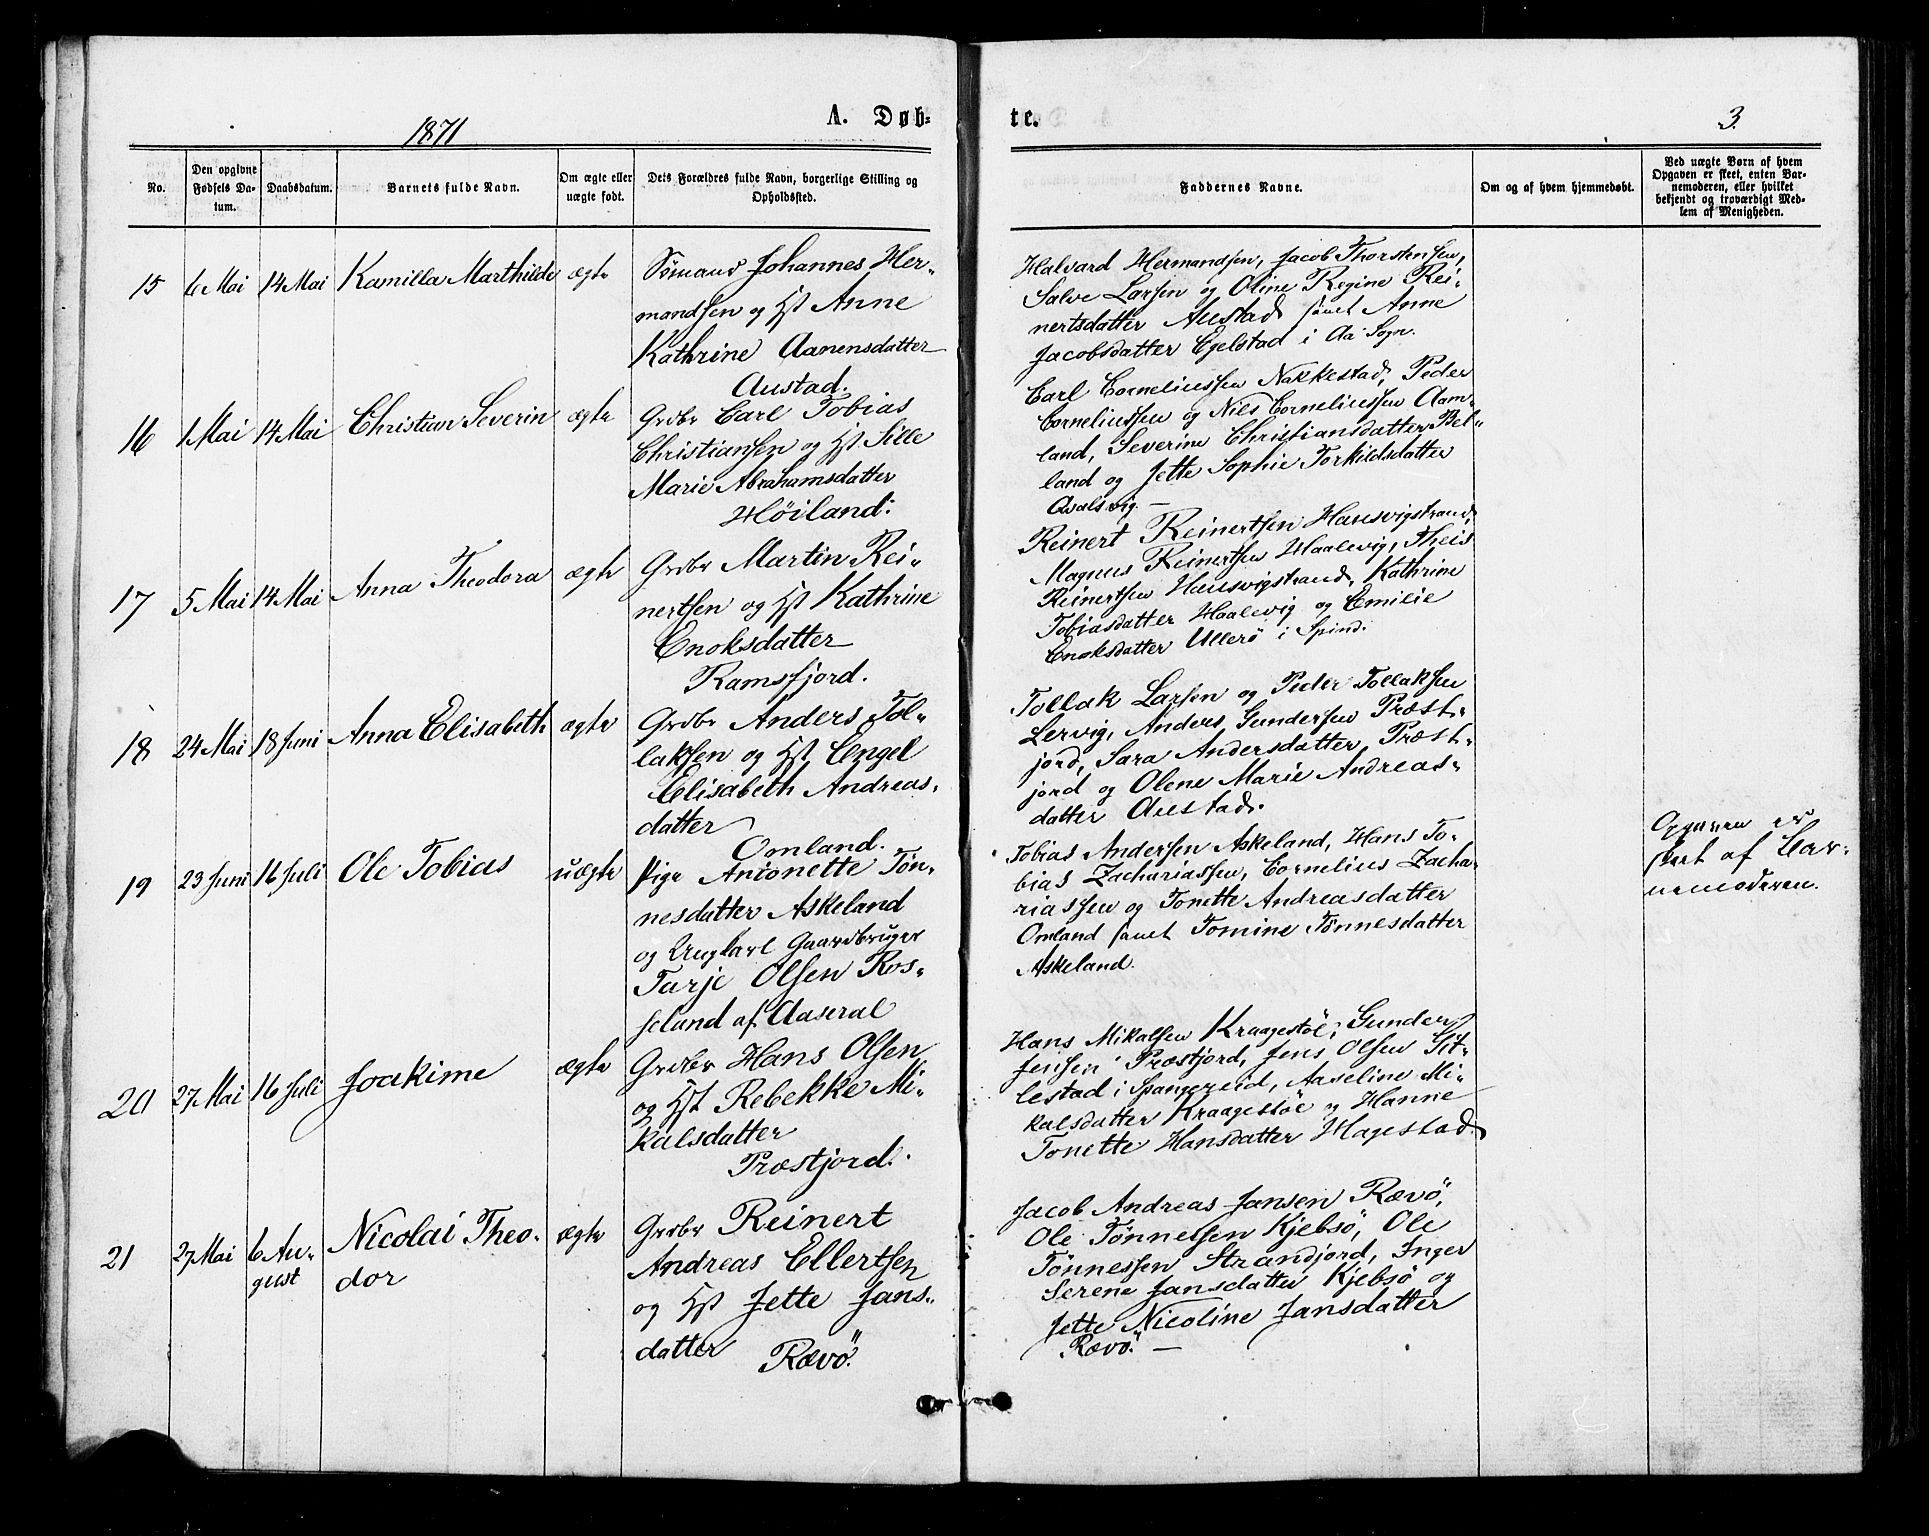 1871
A. Døb-
te.
3.
No.
Den opgivne Fødsels Da-tum.
Daabsdatum.
Barnets fulde Navn.
Om ægte eller uægte født.
Dets Forældres fulde Navn, borgerlige Stilling og Opholdssted.
Faddernes Navne.
Om og af hvem hjemmedøbt.
Ved uægte Børn af hvem Opgaven er skeet, enten Bar-nemoderen, eller hvilket bekjendt og troværdigt Med-lem af Menigheden.
15 6 Mai 14 Mai Kamilla Marthilde ægte
Sømand Johannes Her-
mandsen og Hst Anne
Kathrine Aanensdatter
Austad.
Halvard Hermandsen, Jacob Thorstensen,
Salve Larsen og Oline Regine Rei-
nertsdatter Austad samt Anne
Jacobsdatter Egelstad i Aa Sogn.
16 1 Mai 14 Mai Christian Severin ægte
Grdbr Carl Tobias
Christiansen og Hst Sille
Marie Abrahamsdatter
Høiland.
Carl Corneliussen Nakkestad, Peder
Corneliussen og Nils Corneliussen Aam-
land, Severine Christiansdatter Bel-
land og Jette Sophie Torkildsdatter
Qvalsvig.
17 5 Mai 14 Mai Anna Theodora ægte
Grdbr Martin Rei-
nertsen og Hst Kathrine
Enoksdatter
Ramsfjord.
Reinert Reinertsen Hausvigstrand,
Magnus Reinertsen Haalevig, Theis
Reinertsen Hausvigstrand, Kathrine
Tobiasdatter Haalevig og Emilie
Enoksdatter Ullerø i Spind.
18 24 Mai 18 Juni Anna Elisabeth ægte
Grdbr Anders Tol-
laksen og Hst Engel
Elisabeth Andreas-
datter
Omland.
Tollak Larsen og Peder Tollaksen
Lervig, Anders Gundersen Præst-
jord, Sara Andersdatter Præst-
jord og Olene Marie Andreas-
datter Austad.
19 23 Juni 16 Juli Ole Tobias uægte
Pige Antonette Tøn-
nesdatter Askeland
og Ungkarl Gaardbruger
Tarje Olsen Ros-
seland af Aaseral
Tobias Andersen Askeland, Hans To-
bias Zachariassen, Cornelius Zacha-
riassen og Tonette Andreasdatter
Omland samt Tomine Tønnesdatter
Askeland.
Opgaven er
skeet af Bar-
nemoderen.
20 27 Mai 16 Juli Joakime ægte
Grdbr Hans Olsen
og Hst Rebekke Mi-
kalsdatter
Præstjord.
Hans Mikalsen Kraagestøl, Gunder
Jensen Præstjord, Jens Olsen Sit-
lestad i Spangereid, Aaseline Mi-
kalsdatter Kraagestøl og Hanne
Tonette Hansdatter Hagestad
21 27 Mai 6 Au-
gust
Nicolai Theo-
dor
ægte
Grdbr Reinert
Andreas Ellertsen
og Hst Jette Jans-
datter Rævø.
Jacob Andreas Jansen Rævø,
Ole Tønnesen Kjebsø, Ole
Tønnessen Strandjord, Inger
Serene Jansdatter Kjebsø og
Jette Nicoline Jansdatter
Rævø. —